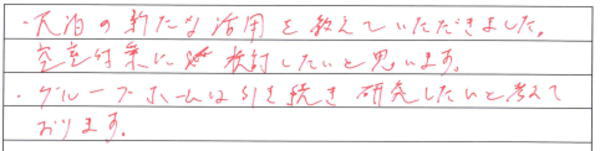 ・民泊の新たな活用を教えていただきました。
空室対策に検討したいと思います。
・グループホームは引き続き研究したいと考えて
おります。